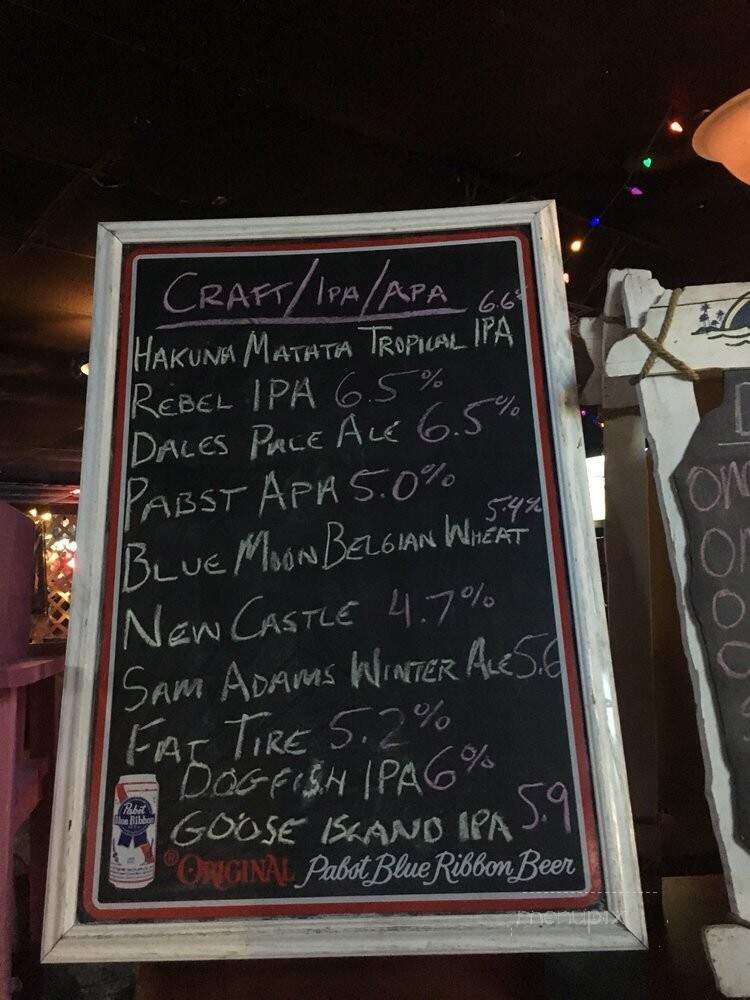 CRAFT/IPA/APA
6.6%
HAKUNA MATATA TROPICAL IPA
REBEL IPA 6.5%
DALES PALE ALE 6.5%
PABST APA 5.0%
5.4%
BLUE MOON BELGIAN WHEAT
NEW CASTLE 4.7%
SAM ADAMS WINTER ALE 5.6
FAT TIRE 5.2%
DOGFISH IPA 6%
GOOSE ISLAND IPA 5.9
Pabst
Blue Ribbon
®ORIGINAL Pabst Blue Ribbon Beer
menupix